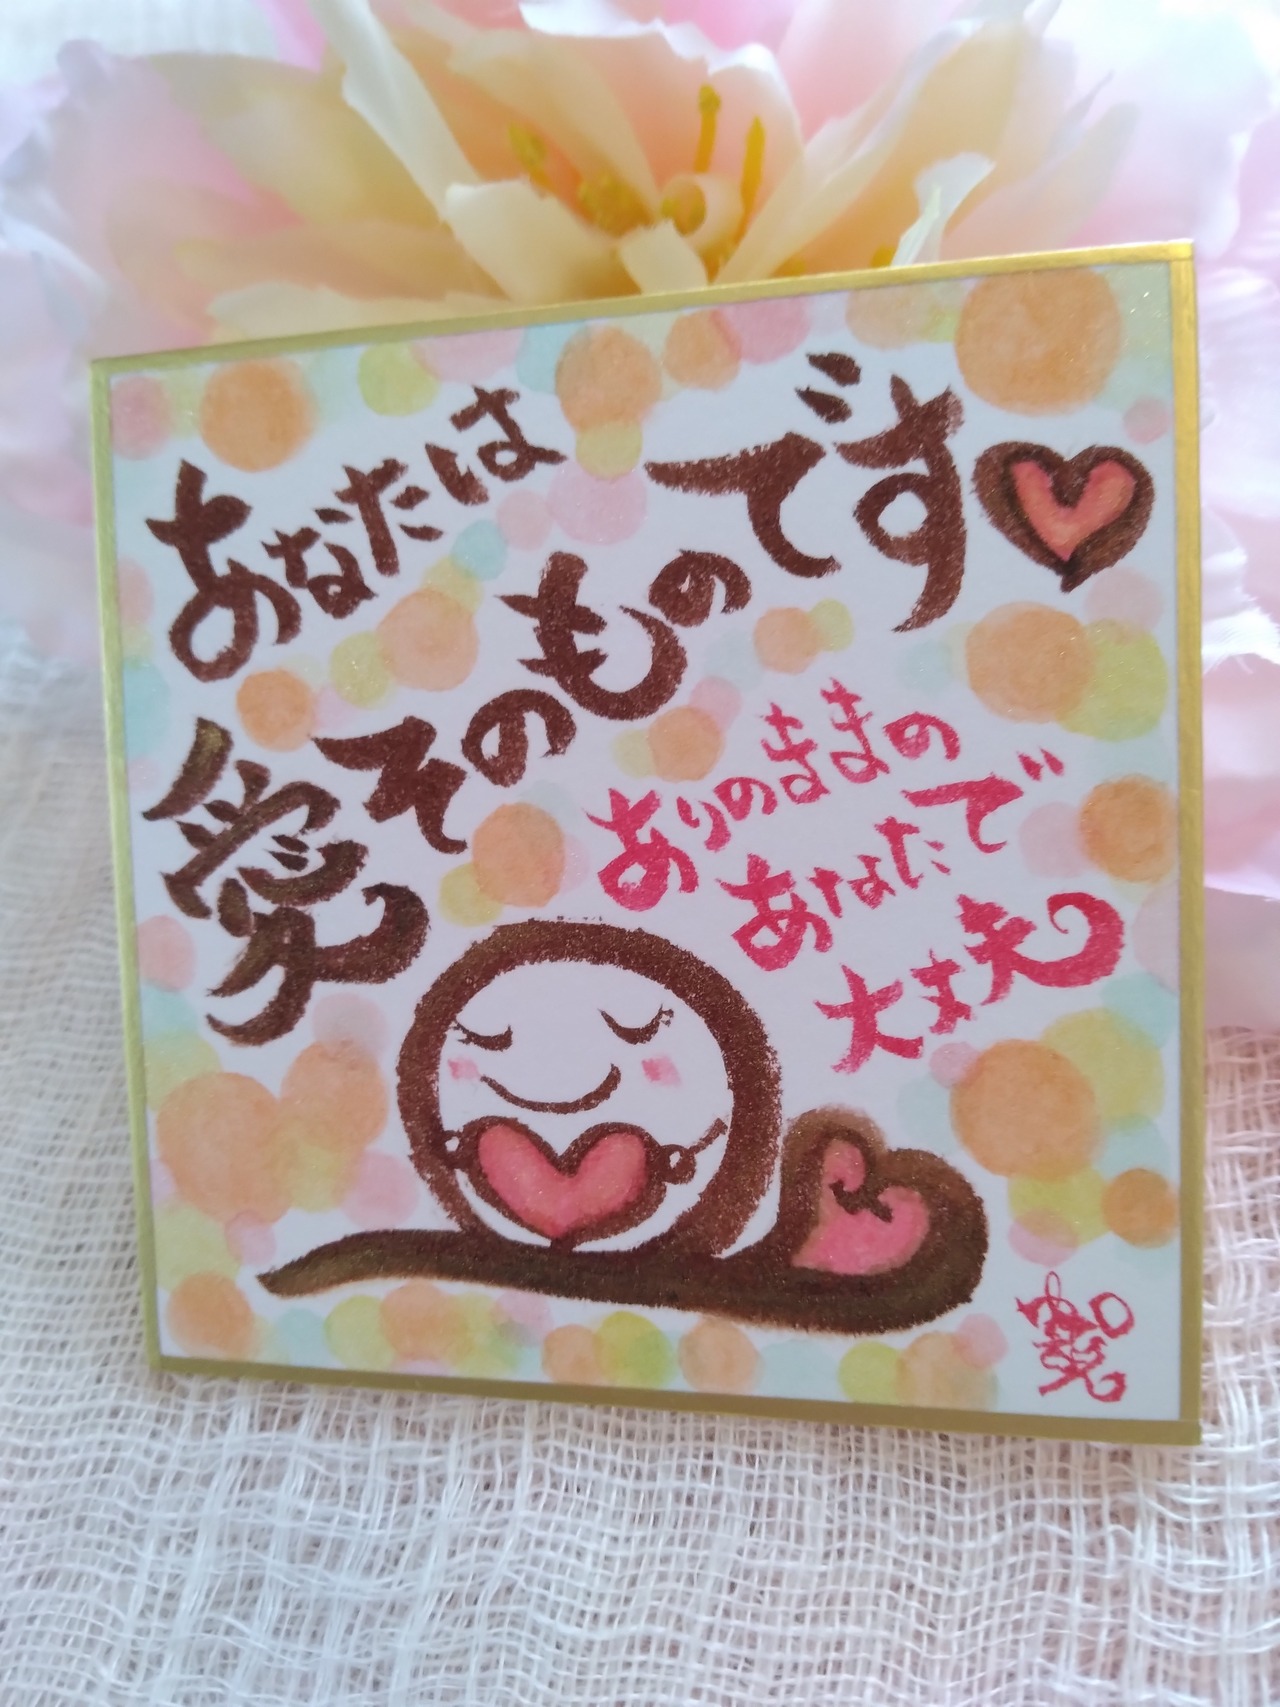 あなたは
愛そのものです
ありのままの
あなたで
大丈夫